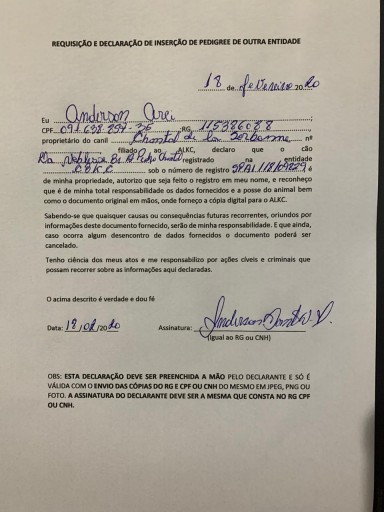 REQUISIÇÃO E DECLARAÇÃO DE INSERÇÃO DE PEDIGREE DE OUTRA ENTIDADE
18 de fevereiro 2020
Eu Anderson
CPF RG
proprietário do canil Chantal de la Sorbonne nº
filiado ALKC, declaro que o cão
registrado na entidade
CBKC sob o número de registro é
de minha propriedade, autorizo que seja feito o registro em meu nome, e reconheço
que é de minha total responsabilidade os dados fornecidos e a posse do animal bem
como o documento original em mãos, onde forneço a cópia digital para o ALKC.
Sabendo-se que quaisquer causas ou consequências futuras recorrentes, oriundos por
informações deste documento fornecido, serão de minha responsabilidade. E que ainda,
caso ocorra algum desencontro de dados fornecidos o documento poderá ser
cancelado.
Tenho ciência dos meus atos e me responsabilizo por ações cíveis e criminais que
possam recorrer as informações aqui declaradas.
O acima descrito é verdade e dou fé
Data: 18/02/2020 Assinatura: Anderson
(Igual ao RG ou CNH)
OBS: ESTA DECLARAÇÃO DEVE SER PREENCHIDA A MÃO PELO DECLARANTE E SÓ É
VÁLIDA COM O ENVIO DAS CÓPIAS DO RG E CPF OU CNH DO MESMO EM JPEG, PNG OU
FOTO. A ASSINATURA DO DECLARANTE DEVE SER A MESMA QUE CONSTA NO RG CPF
OU CNH.